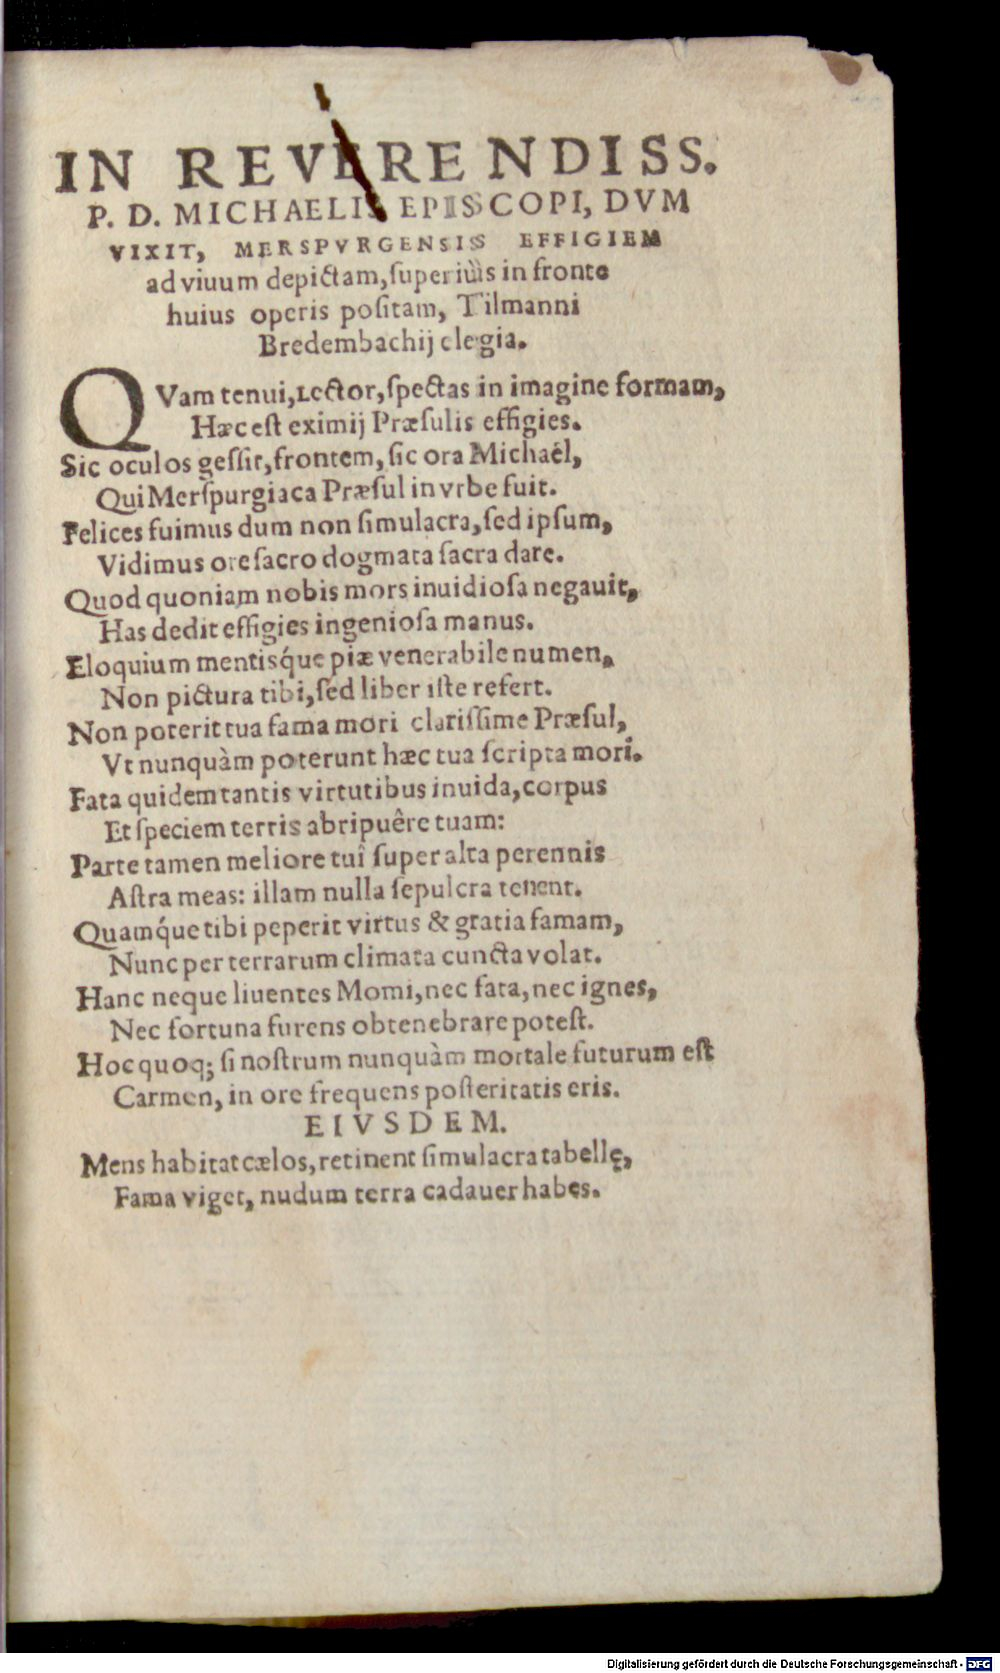 IN REVERENDISS.
P. D. MICHAELIS EPIISCOPI, DVM
VIXIT, MERSPVRGENSIS EFFIGIEM
ad viuum depictam, ſuperiùs in fronte
huius operis poſitam, Tilmanni
Bredembachij elegia.
QVam tenui, Lector, ſpectas in imagine formam,
Hæc eſt eximij Præſulis effigies.
Sic oculos geſſit, frontem, ſic ora Michaël,
Qui Merſpurgiaca Præſul in vrbe fuit.
Felices fuimus dum non ſimulacra, ſed ipſum,
Vidimus ore ſacro dogmata ſacra dare.
Quod quoniam nobis mors inuidioſa negauit,
Has dedit effigies ingenioſa manus.
Eloquium mentisq́ue piæ venerabile numen,
Non pictura tibi, ſed liber iſte refert.
Non poterit tua fama mori clariſſime Præſul,
Vt nunquàm poterunt hæc tua ſcripta mori.
Fata quidem tantis virtutibus inuida, corpus
Et ſpeciem terris abripuêre tuam:
Parte tamen meliore tuî ſuper alta perennis
Aſtra meas: illam nulla ſepulcra tenent.
Quamq́ue tibi peperit virtus & gratia famam,
Nunc per terrarum climata cuncta volat.
Hanc neque liuentes Momi, nec fata, nec ignes,
Nec fortuna furens obtenebrare poteſt.
Hoc quoq; ſi noſtrum nunquàm mortale futurum eſt
Carmen, in ore frequens poſteritatis eris.
EIVSDEM.
Mens habitat cælos, retinent ſimulacra tabellę,
Fama viget, nudum terra cadauer habes.
Digitalisierung gefördert durch die Deutsche Forschungsgemeinschaft - DFG